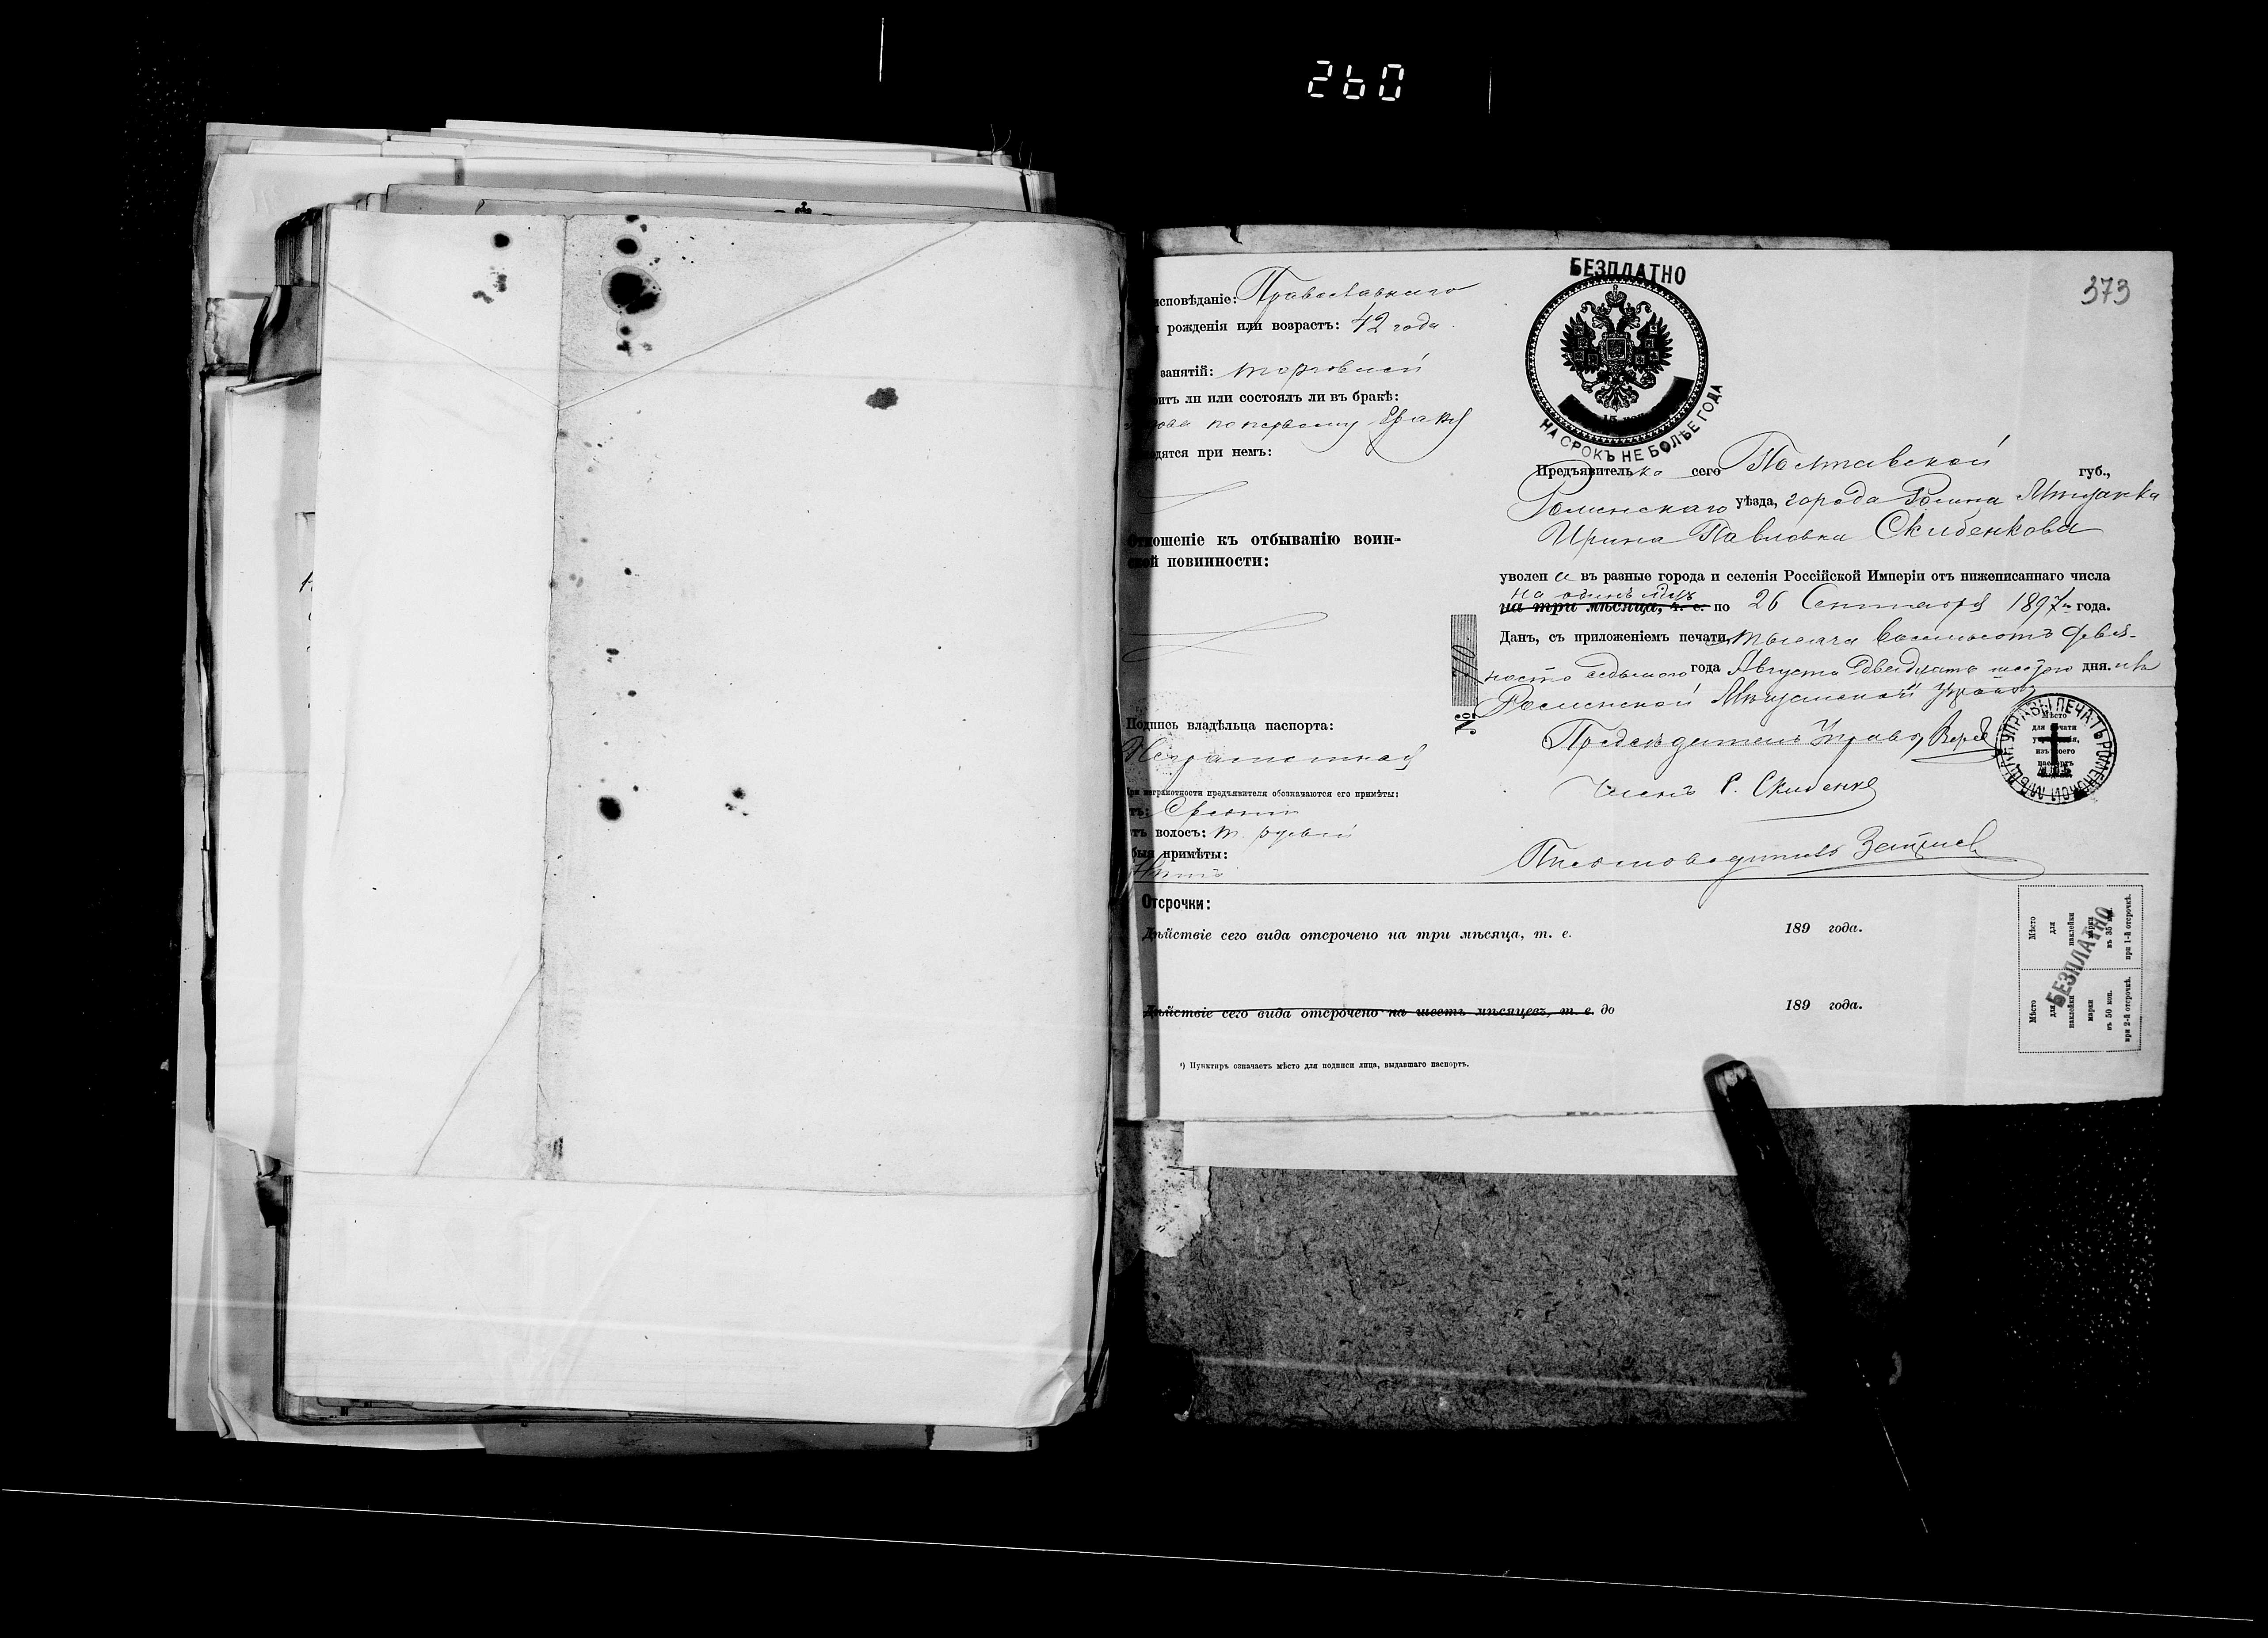 260
373
исповѣданіе: Православнаго
рожденія или возрастъ: 42 года
занятій: торговлей
оитъ ли или состоялъ ли въ бракѣ:
вдова по первому браку
одятся при немъ:
Отношеніе къ отбыванію воин-
ской повинности:
Подпись владѣльца паспорта:
Неграмотная
При неграмотности предъявителя обозначаются его примѣты:
тъ: Средній
тъ волосъ: т. русый
быя примѣты:
Нѣтъ
БЕЗПЛАТНО
НА СРОКЪ НЕ БОЛѢЕ ГОДА
Предъявителька сего Полтавской губ.,
Роменскаго уѣзда, города Ромна Мѣщанка
Ирина Павловна Скибенкова
уволена въ разные города и селенія Россійской Имперіи отъ нижеписаннаго числа
на одинъ м-цъ
на три мѣсяца, т. е. по 26 Сентября 1897 года.
Данъ, съ приложеніемъ печати, тысяча восемьсотъ девя-
носто седьмого года Августа двадцать шестого дня. изъ
Роменской Мѣщанской Управы
№ 710
Предсѣдатель Управы
Членъ Р. Скибенко
Письмоводитель
ПЕЧАТЬ РОМЕНСКОЙ МѢЩАН. УПРАВЫ
Мѣсто
для печати
Отсрочки:
Дѣйствіе сего вида отсрочено на три мѣсяца, т. е. 189 года.
Дѣйствіе сего вида отсрочено на шесть мѣсяцевъ, т. е. до 189 года.
¹) Пунктиръ означаетъ мѣсто для подписи лица, выдавшаго паспортъ.
Мѣсто
для
наклейки
марки
въ 35 коп.
при 1-й отсрочкѣ.
Мѣсто
для
наклейки
марки
въ 50 коп.
при 2-й отсрочкѣ.
БЕЗПЛАТНО